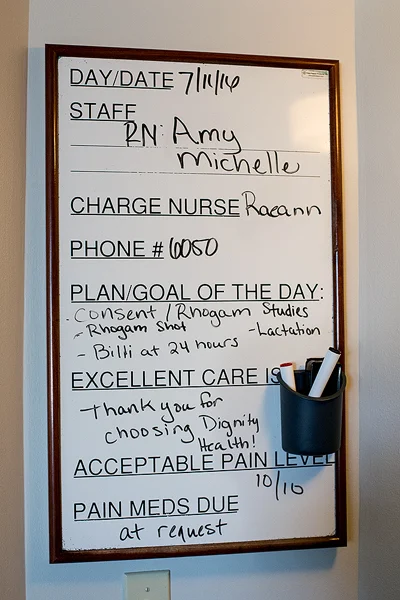 DAY/DATE 7/11/16
STAFF
RN: Amy
Michelle
CHARGE NURSE Raeann
PHONE # 6050
PLAN/GOAL OF THE DAY:
- Consent / Rhogam Studies
- Rhogam Shot - Lactation
- Billi at 24 hours
EXCELLENT CARE IS
Thank you for
choosing Dignity
Health!
ACCEPTABLE PAIN LEVEL
10/10
PAIN MEDS DUE
at request